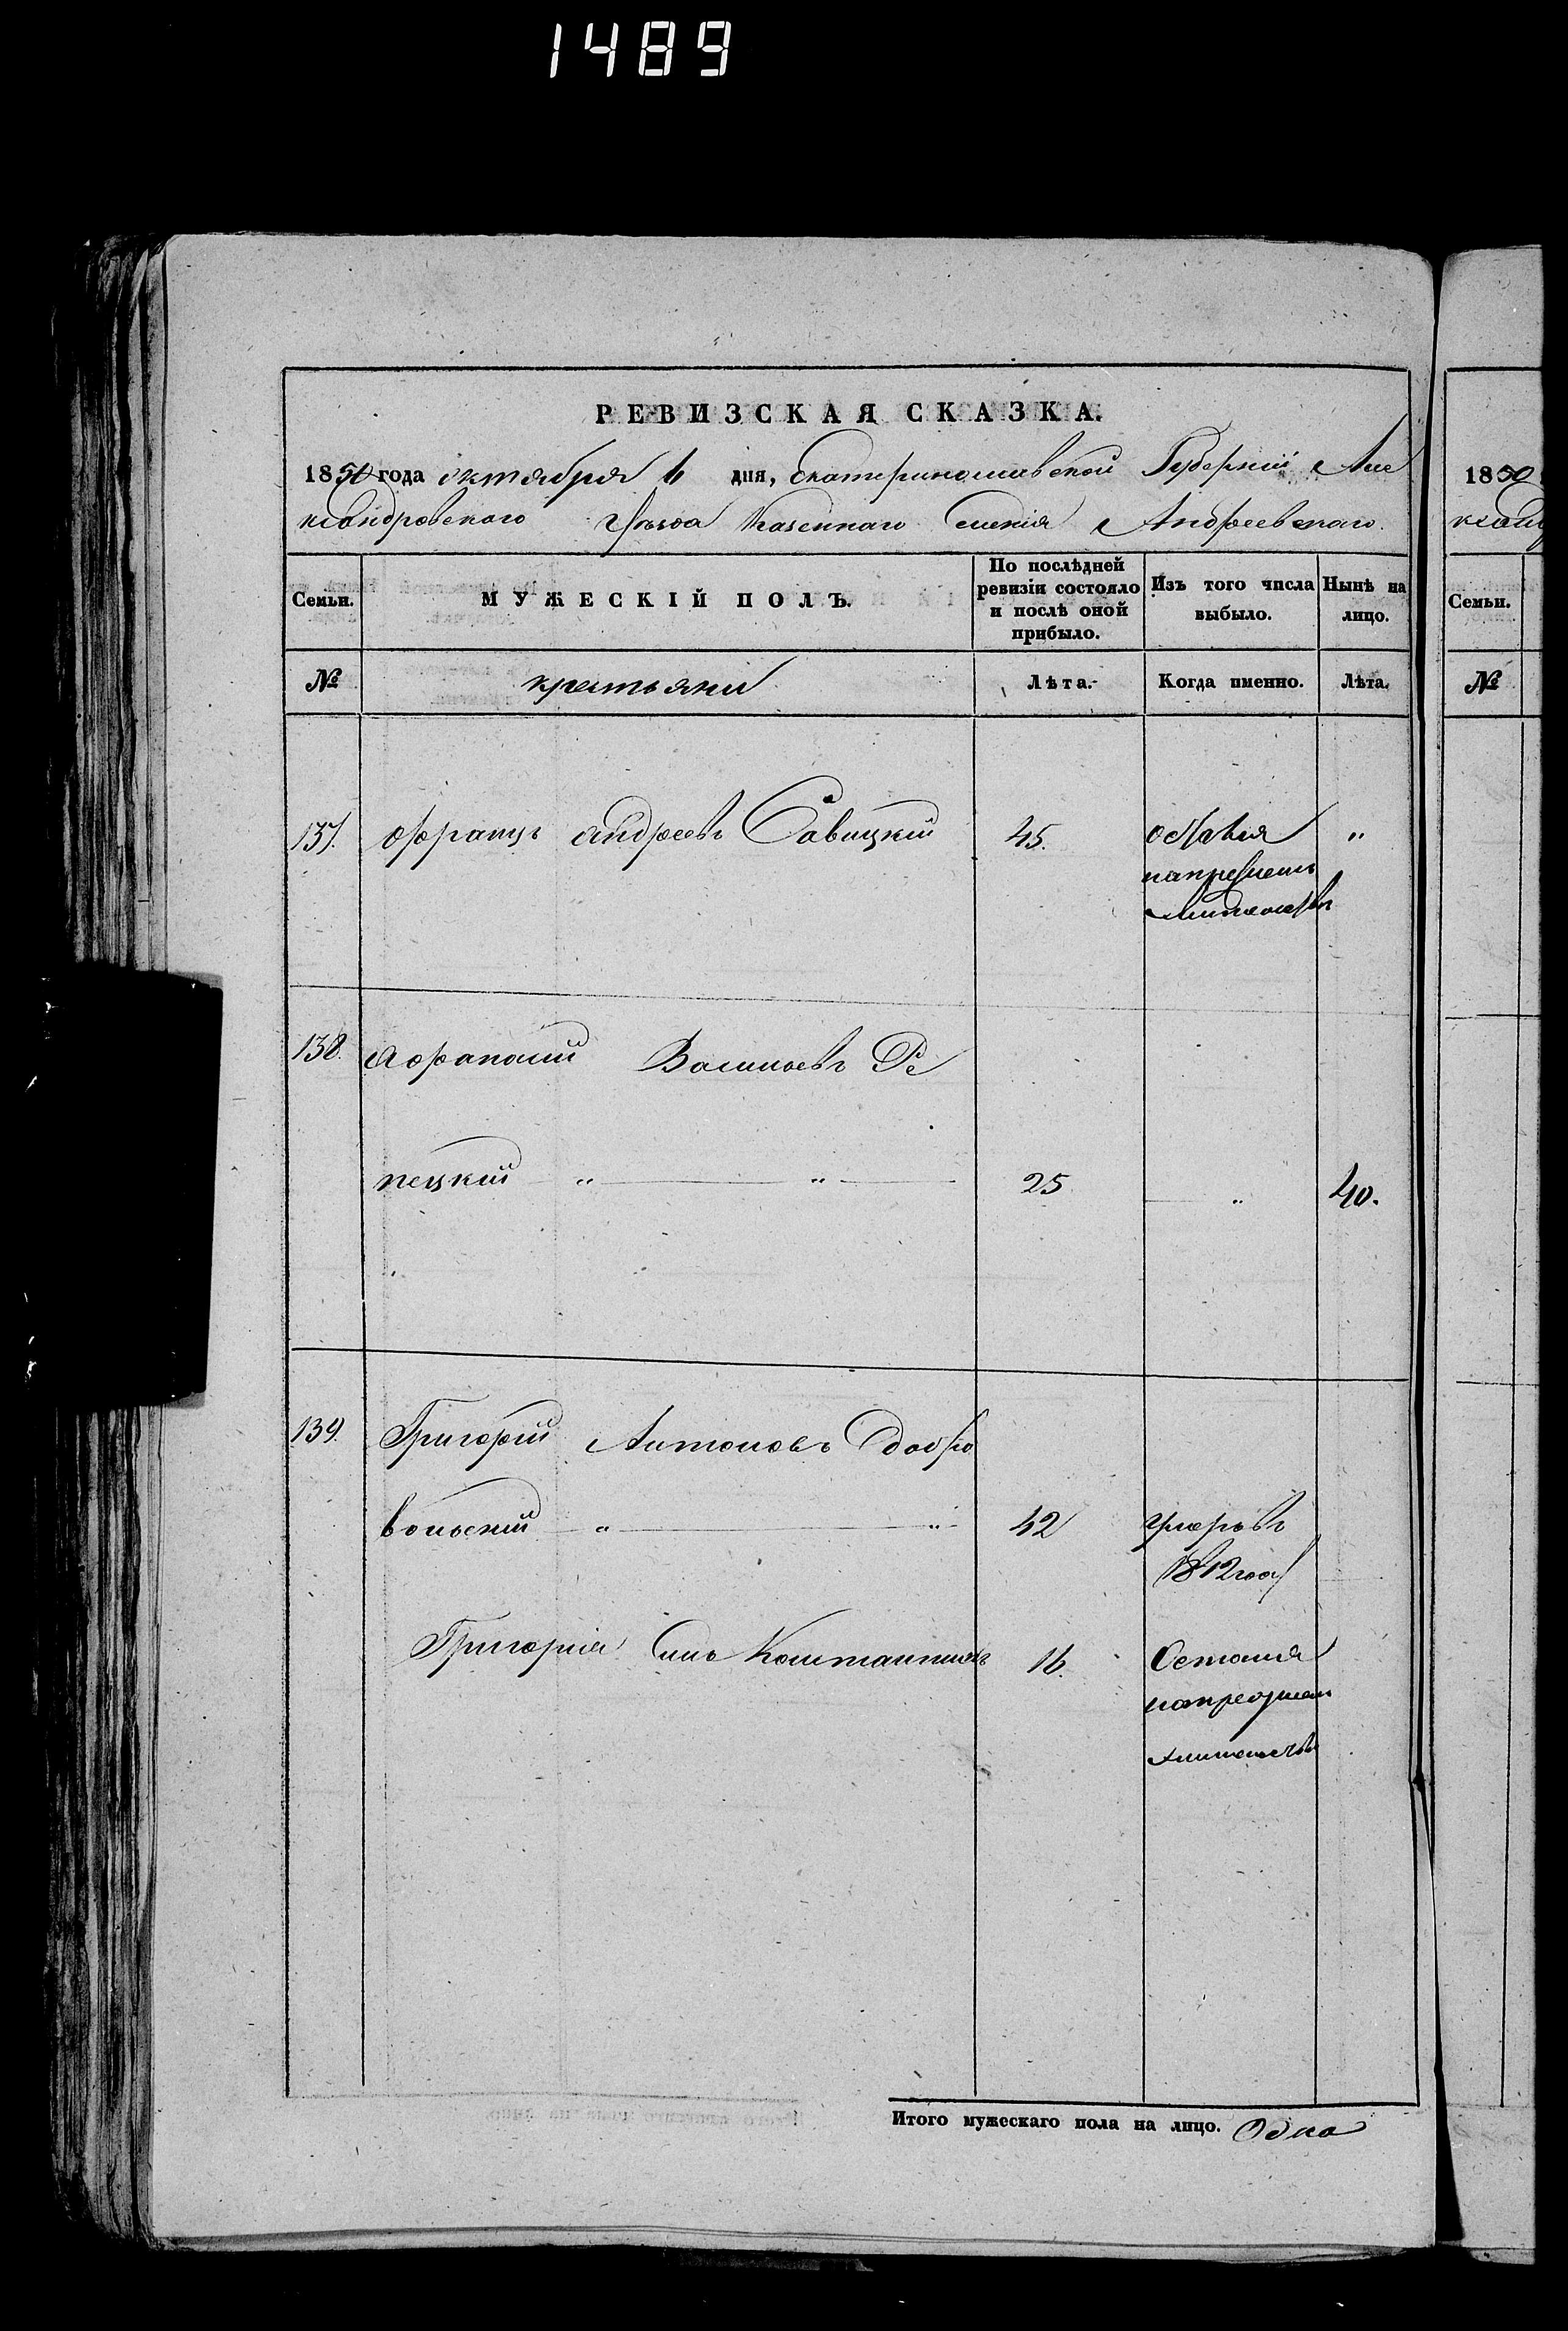 1489
РЕВИЗСКАЯ СКАЗКА.
1850 года октября 6 дня, Екатеринославской Губернии Але
ксандровского Уѣзда Казеннаго Селенія Андреевскаго.
1850
Семьи.
МУЖЕСКІЙ ПОЛЪ.
По послѣдней ревизіи состояло и послѣ оной прибыло.
Изъ того числа выбыло.
Ныне на лицо.
Семьи.
№
крестьяни
Лѣта.
Когда именно.
Лѣта.
№
137. Францъ Андреевъ Савицкий 45. "
138. Афанасий Васильевъ Ре
пецкий " " 25 " 40.
139. Григорий Антоновъ Добро
вольский " " 42 умеръ въ
1842 года
Григория Сынъ Константинъ 16.
Итого мужескаго пола на лицо. Одна